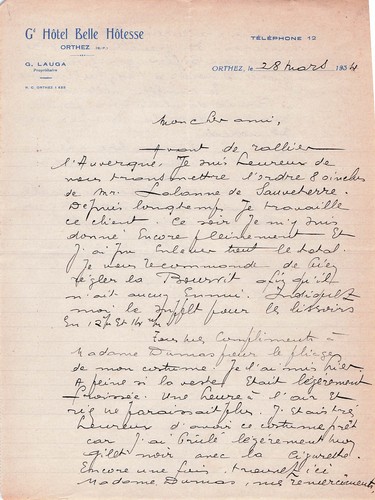 Gd Hôtel Belle Hôtesse
ORTHEZ (B.-P.)
TÉLÉPHONE 12
G. LAUGA
Propriétaire
R. C. ORTHEZ
ORTHEZ, le 28 mars 1934
Mon cher ami,
Avant de rallier
l'Auvergne. Je suis heureux de
vous transmettre l'ordre 8 circles
de Mr. Lalanne de Sauveterre.
Depuis longtemps je travaille
ce client. Ce soir je m'y suis
donné Encore pleinement Et
J'ai pu Enlever tout le total.
Je vous recommande de bien
régler la afin qu'il
n'ait aucun Ennui. Indiquez
moi le pour les lissoirs
En 12 Et 14
Tous mes Compliments à
Madame Dumas pour le pliage
de mon costume. Je l'ai mis hier
A peine si la veste Etait légèrement
froissée. Une heure à l'air et
rien ne paraissait plus. J'étais très
heureux d'avoir ce costume prêt
car J'ai brulé légèrement mon
gilet noir avec la cigarette.
Encore une fois, trouvez ici
Madame Dumas, mes remerciements,